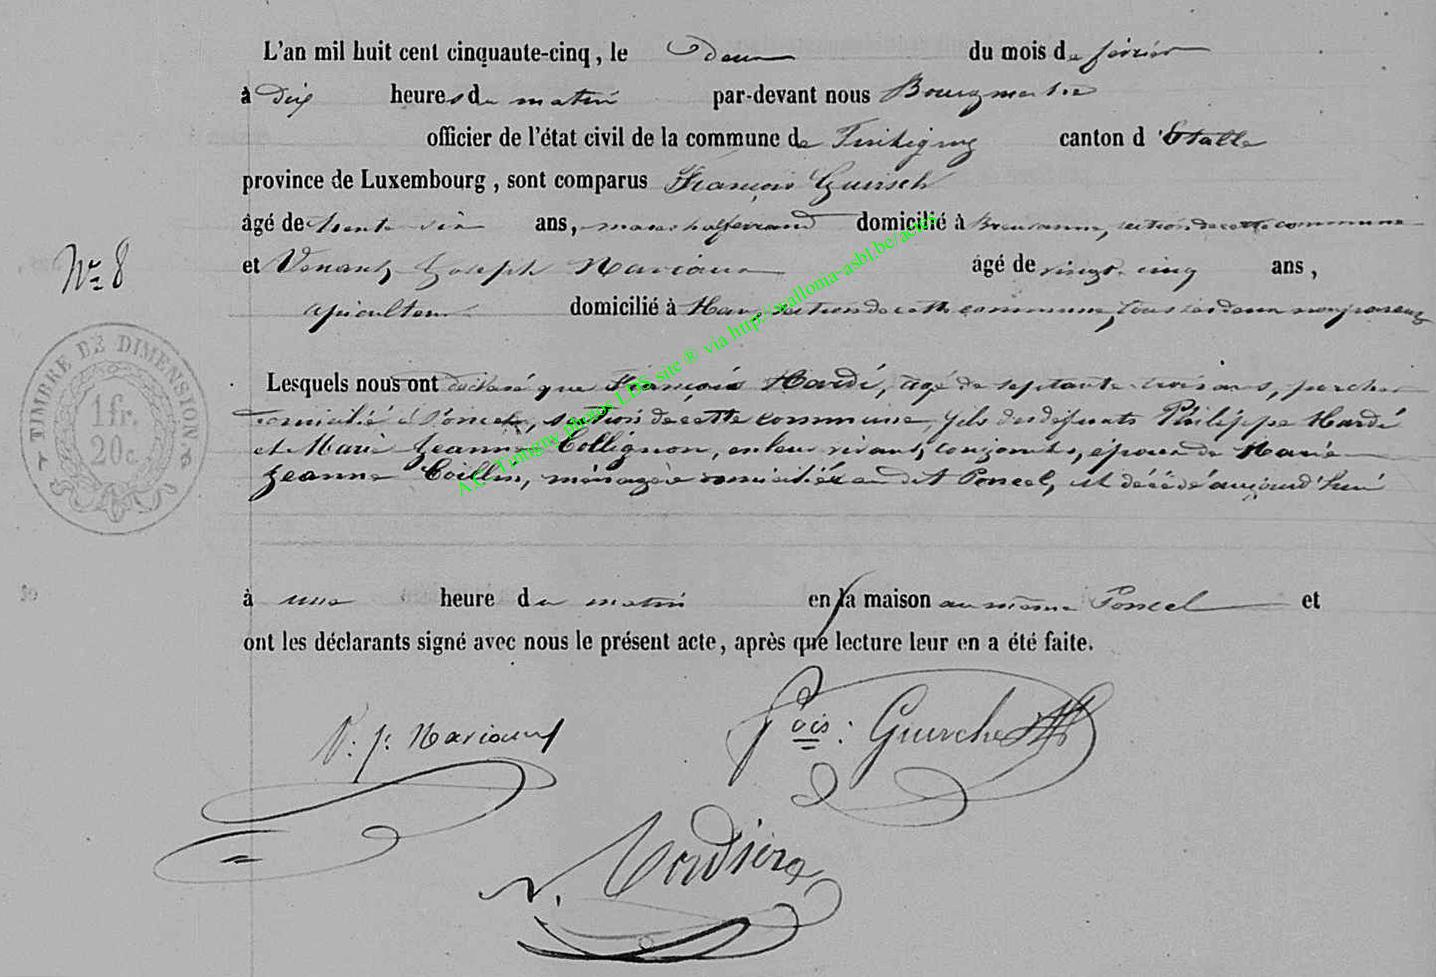 L'an mil huit cent cinquante-cinq, le deux du mois de février
à dix heures du matin par-devant nous Bourgmestre
officier de l'état civil de la commune de Tintigny canton d'Etalle
province de Luxembourg, sont comparus François Guirsch
âgé de trente six ans, maréchalferrand domicilié à Breuvanne, section de cette commune
N° 8
et Venant Joseph Mariaux âgé de vingt cinq ans,
apiculteur domicilié à Han, section de cette commune, tous les deux non parens
Lesquels nous ont déclaré que François Hardi, âgé de septante trois ans, porcher
domicilié à Poncel, section de cette commune, fils des défunts Philippe Hardi
et Marie Jeanne Collignon, en leur vivant, conjoints, époux de Marie
Jeanne Coillin, ménagère domiciliée au dit Poncel, est décédé aujourd'hui
TIMBRE DE DIMENSION
1 fr.
20 c.
à une heure du matin en la maison au même Poncel et
ont les déclarants signé avec nous le présent acte, après que lecture leur en a été faite.
V. J. Mariaux
Fois : Guirche
A.C. Tintigny photos LDS site ® via http://walloma-asbl.be/actes